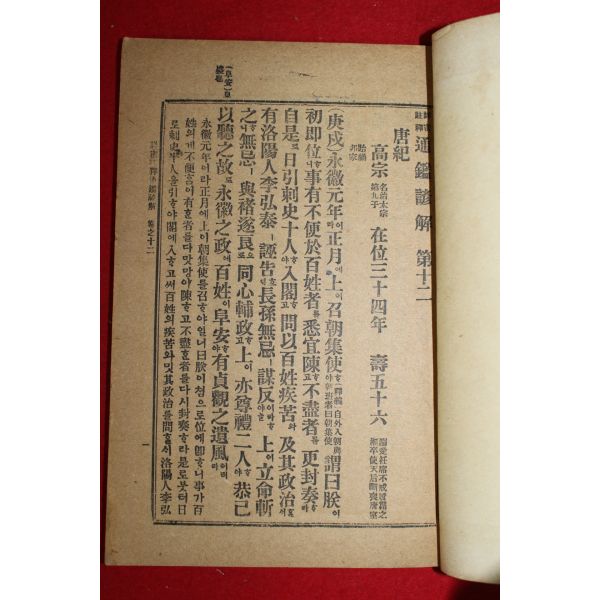 註釋 通鑑諺解 第十二
唐紀
高宗 名治太宗第九子 在位三十四年 壽五十六
(庚戌)永徽元年이라正月에上이召朝集使하야謂曰朕이
初即位하야事有不便於百姓者를悉宜陳이고不盡者를更封奏하라
自是로日引刺史十人하야入閣하고問以百姓疾苦와及其政治러라
有洛陽人李弘泰ㅣ誣告長孫無忌ㅣ謀反이어늘上이立命斬
之하니無忌ㅣ與褚遂良으로同心輔政하고上이亦尊禮二人하야恭己
以聽之故로永徽之政에百姓이阜安하야有貞觀之遺風이러라
永徽元年이라正月에上이朝集使를召하야일너曰朕이첨으로位에即하니事가百
姓의게不便함이有한者를다맛당이陳하고不盡한者를다시封奏하라是로붓터日
로刺史十人을引하야閣에入하고써百姓의疾苦와밋其政治를問할새洛陽人李弘
(阜安)
卷之十二